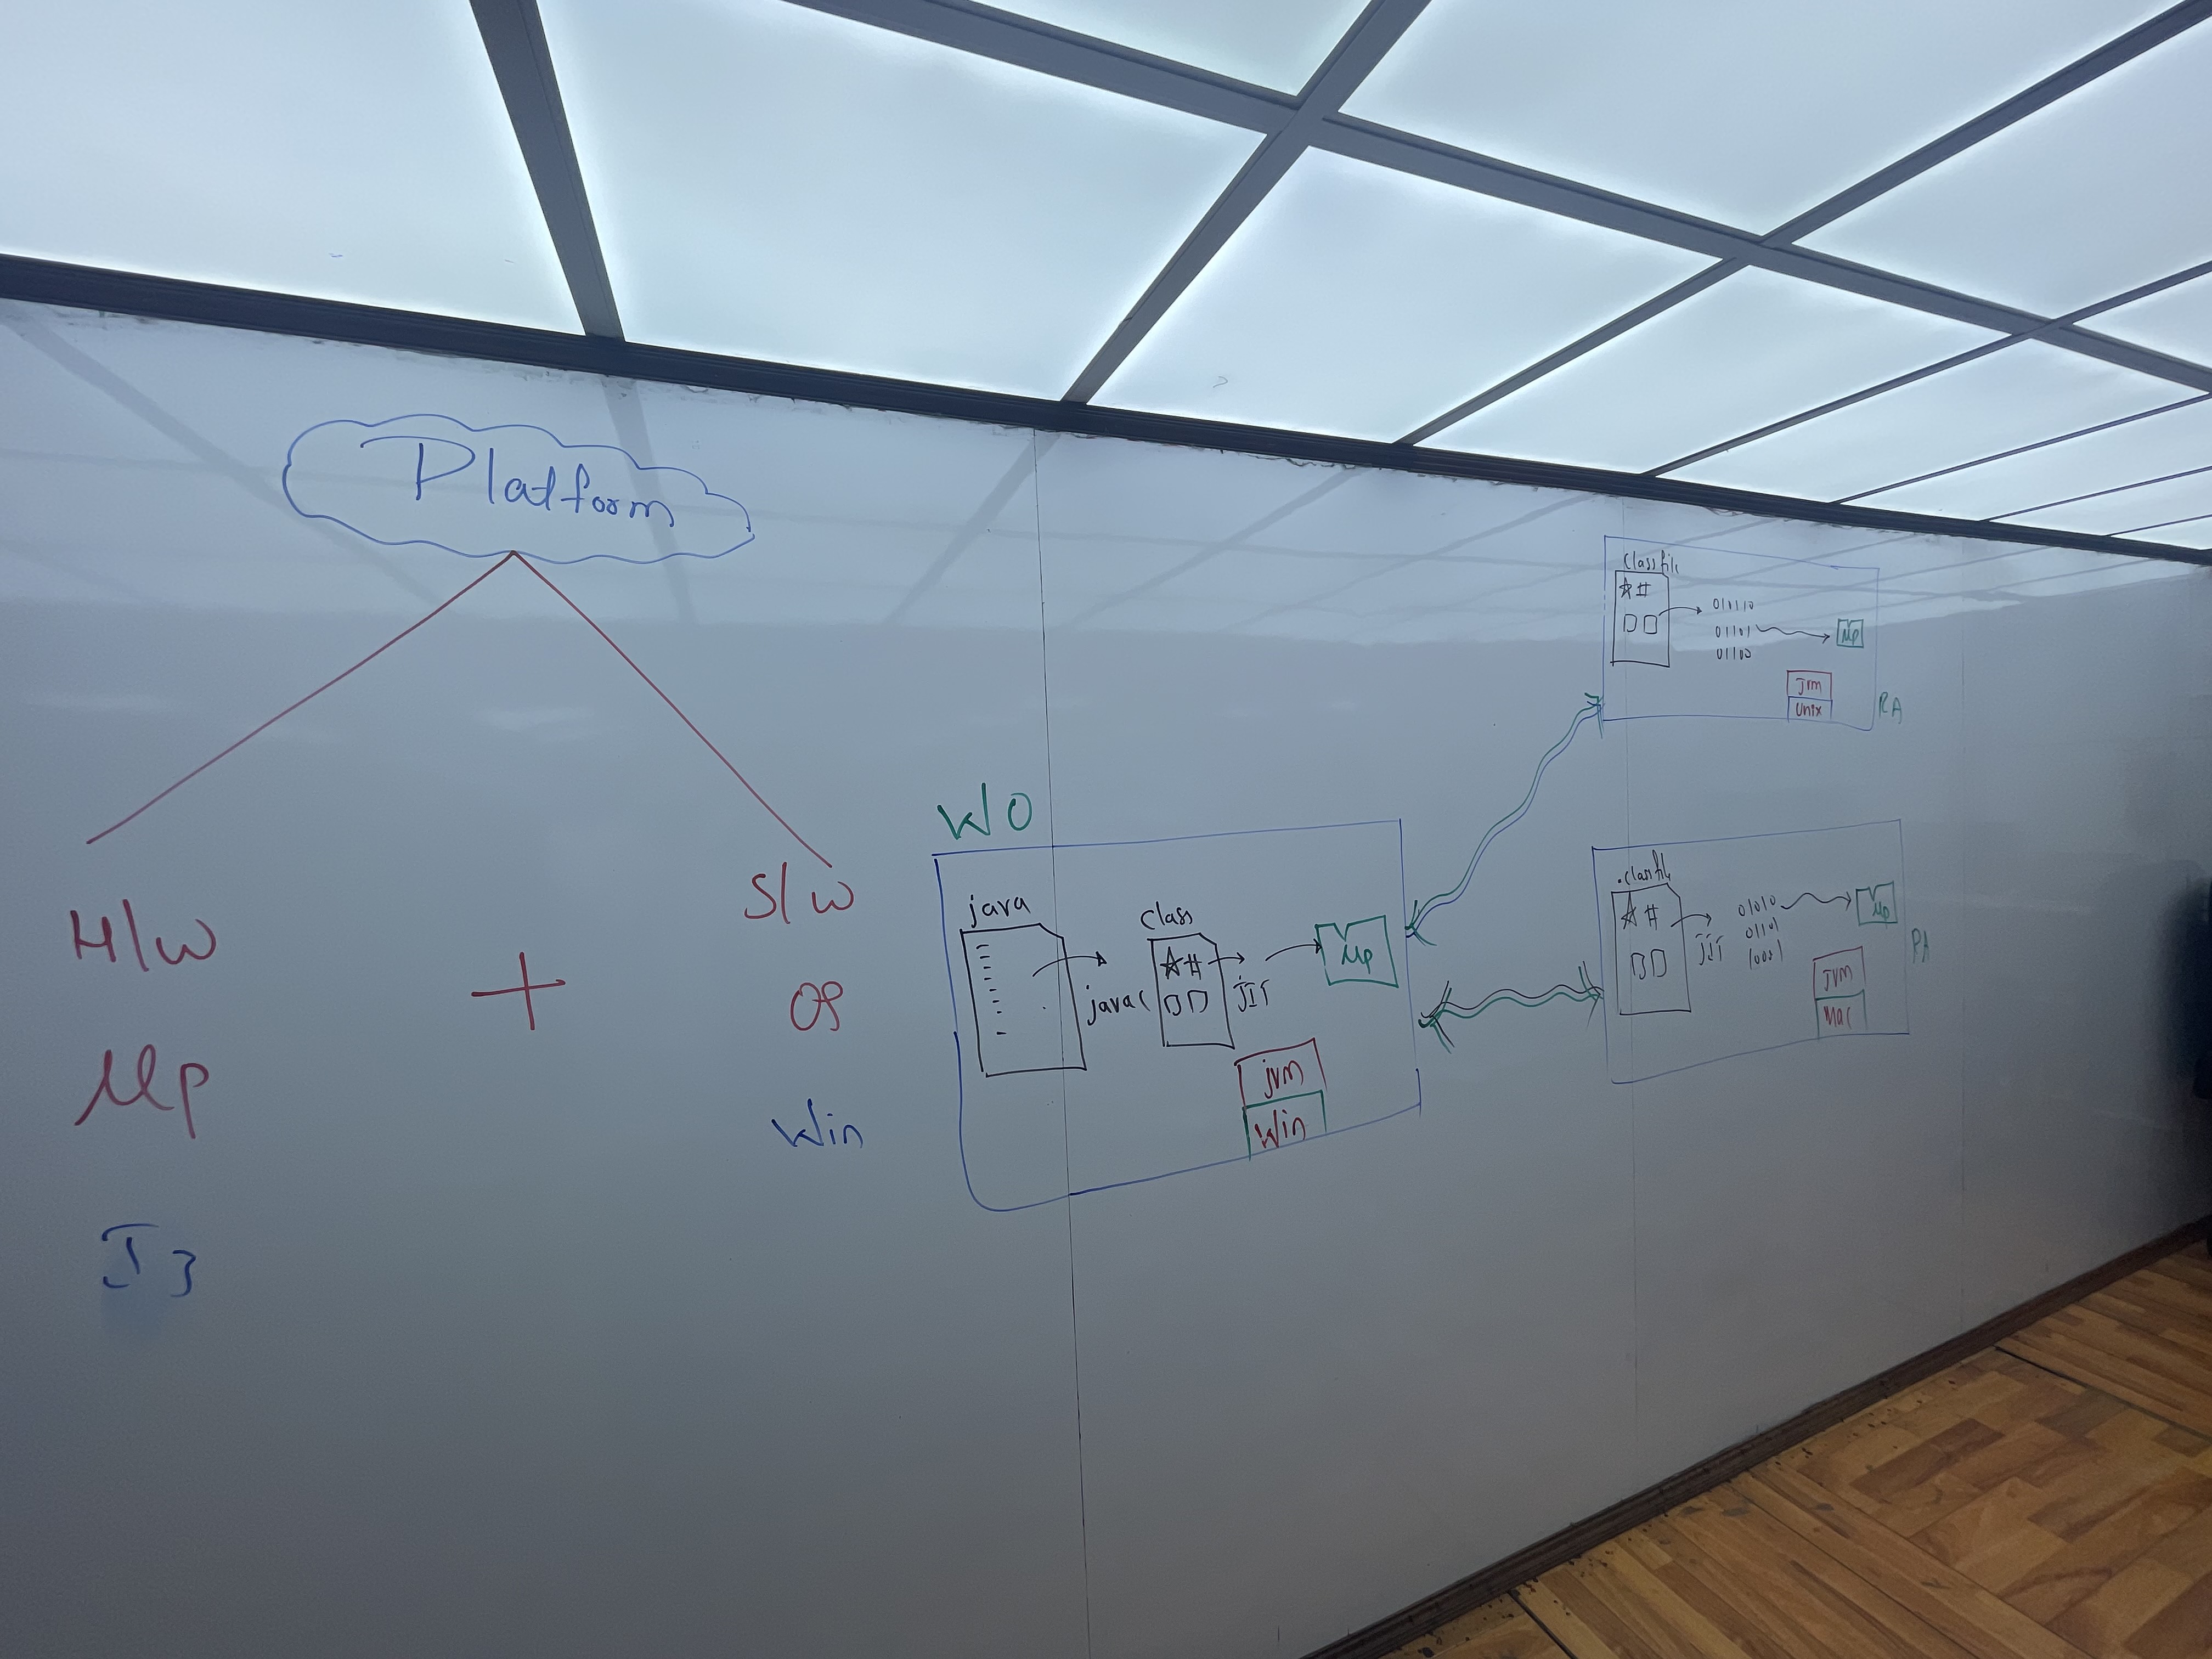 Platform
H/W
+
S/W
OS
μp
Win
I3
W/O
java
javac
class
☆#
JIT
μp
jvm
Win
class file
☆#
010110
01101
01100
μp
Jvm
Unix
RA
.class file
☆#
JIT
01010
01101
10001
μp
Jvm
Mac
RA